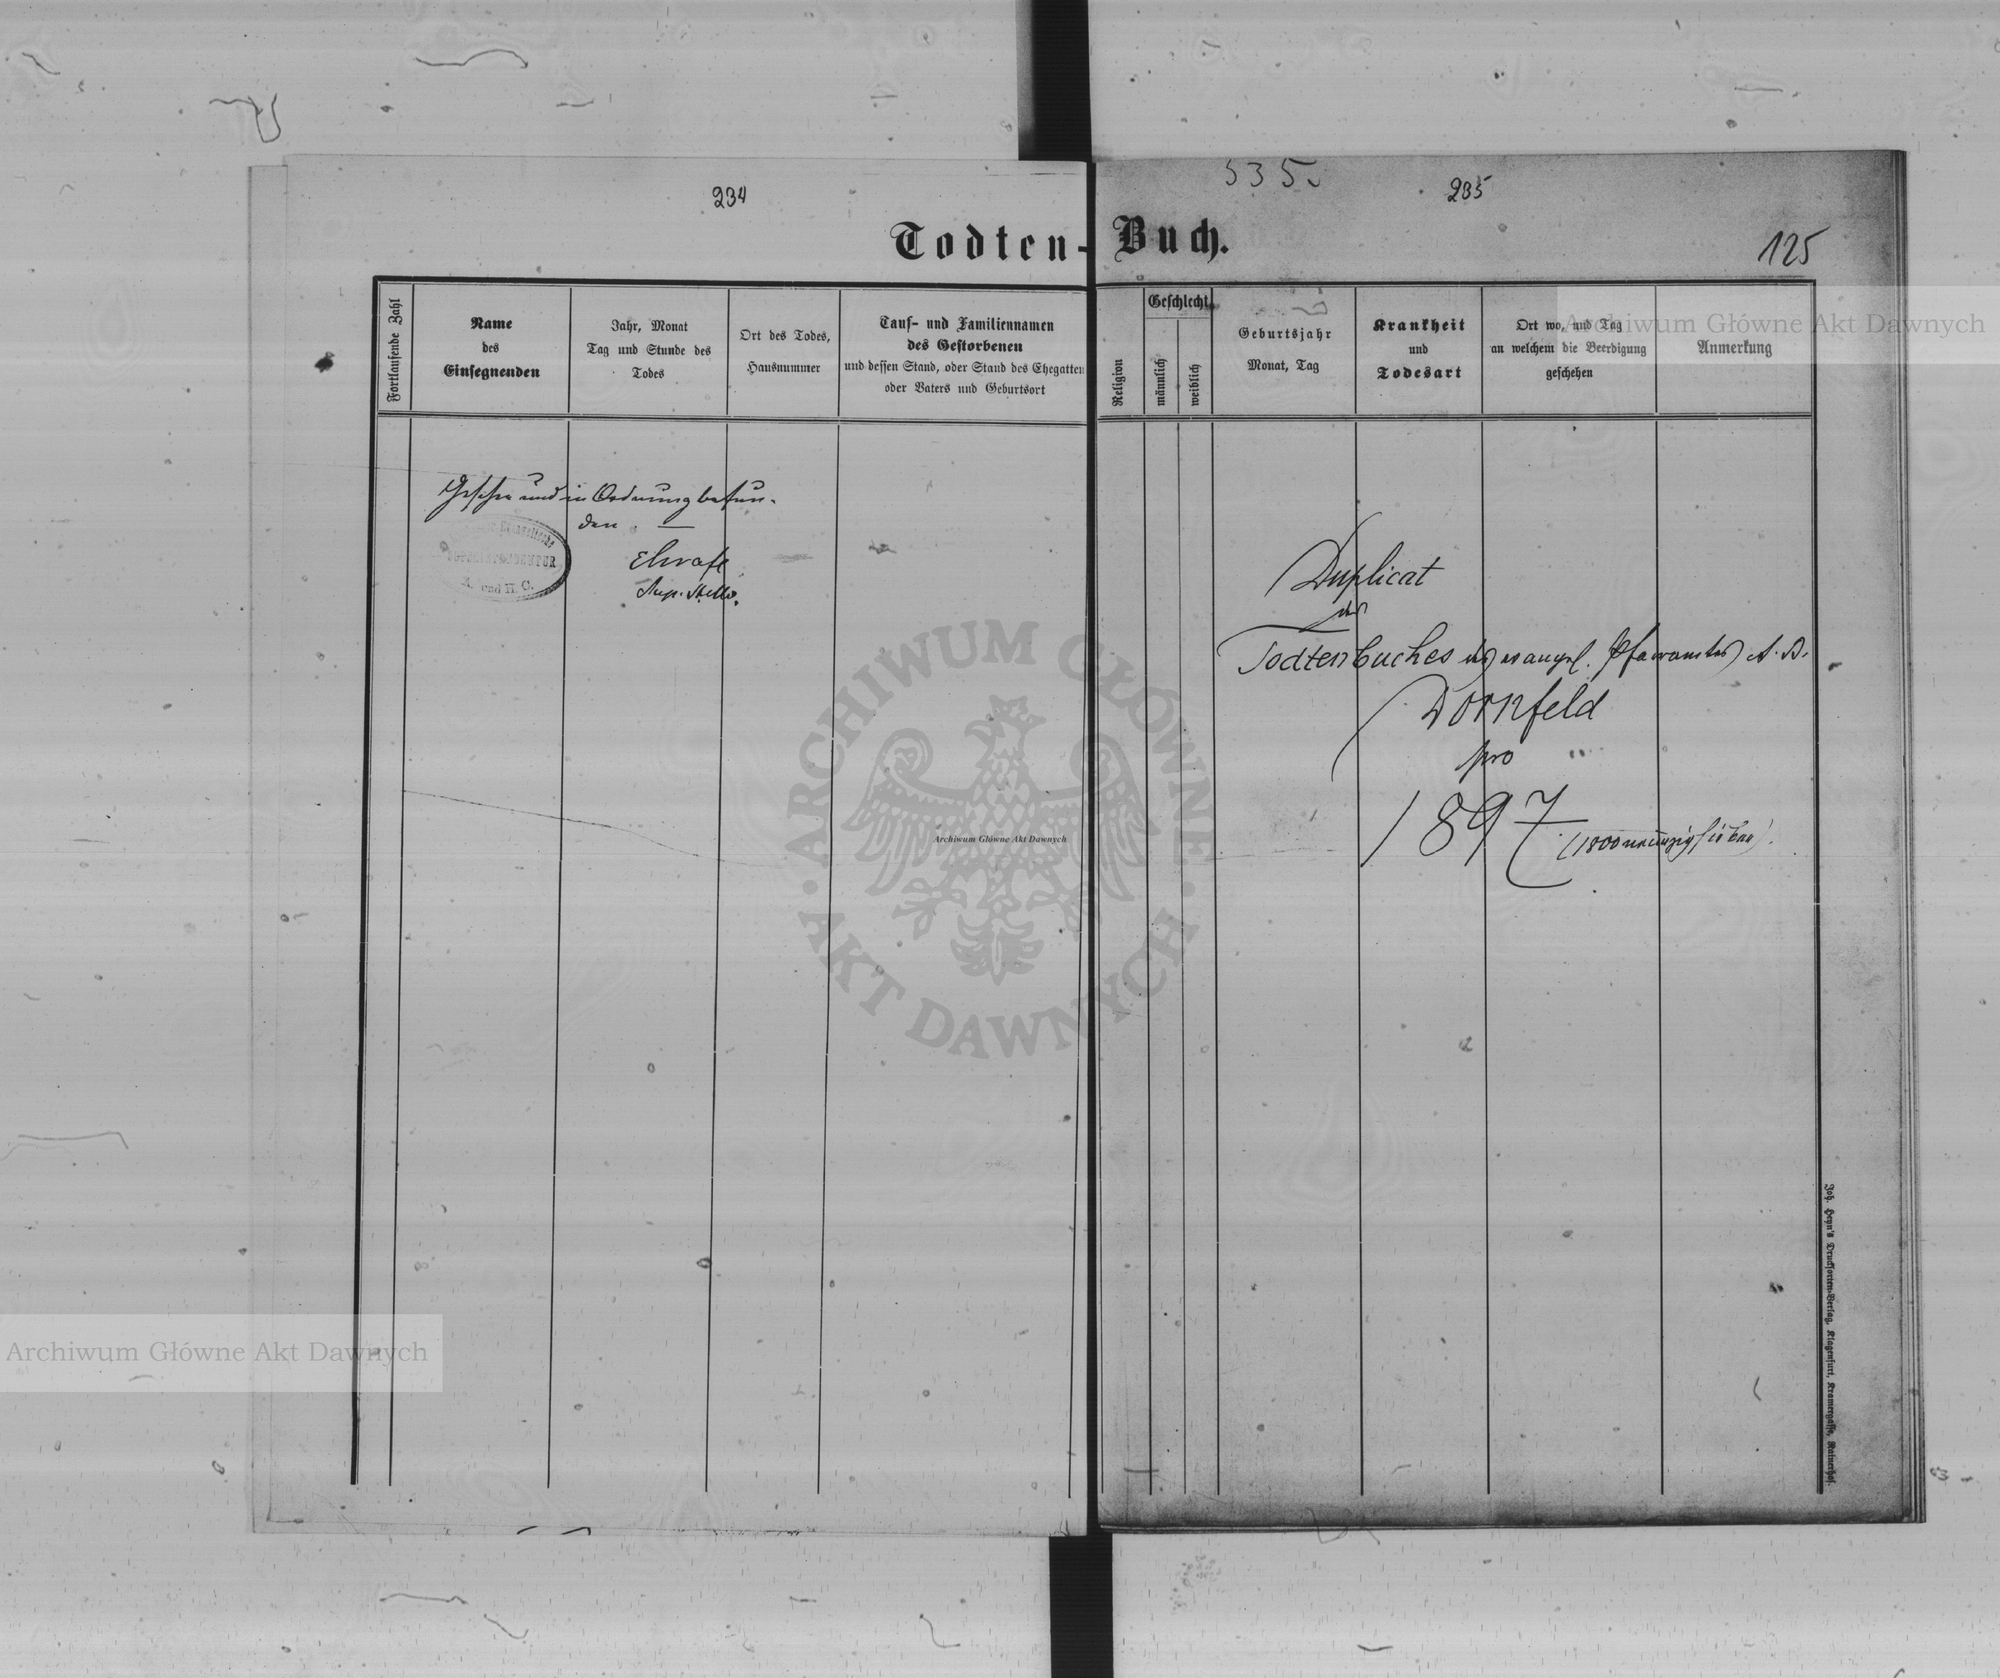 234
535.
235
125
Todten-Buch.
Fortlaufende Zahl
Name
des
Einsegnenden
Jahr, Monat
Tag und Stunde des
Todes
Ort des Todes,
Hausnummer
Tauf- und Familiennamen
des Gestorbenen
und dessen Stand, oder Stand des Ehegatten
oder Vaters und Geburtsort
Religion
Geschlecht
männlich
weiblich
Geburtsjahr
Monat, Tag
Krankheit
und
Todesart
Ort wo, und Tag
an welchem die Beerdigung
geschehen
Anmerkung
Gesehen und in Ordnung befun-
den.
A. und H. C.
Sup. Stellv.
Duplicat
des
Todtenbuches des evangel. Pfarramtes A. B.
Dornfeld
pro
1897
(1800neunzigsieben).
Joh. Heyn's Drucksorten-Verlag, Klagenfurt, Kramergasse, Rainerhof.
Archiwum Główne Akt Dawnych
ARCHIWUM GŁÓWNE
AKT DAWNYCH
Archiwum Główne Akt Dawnych
Archiwum Główne Akt Dawnych